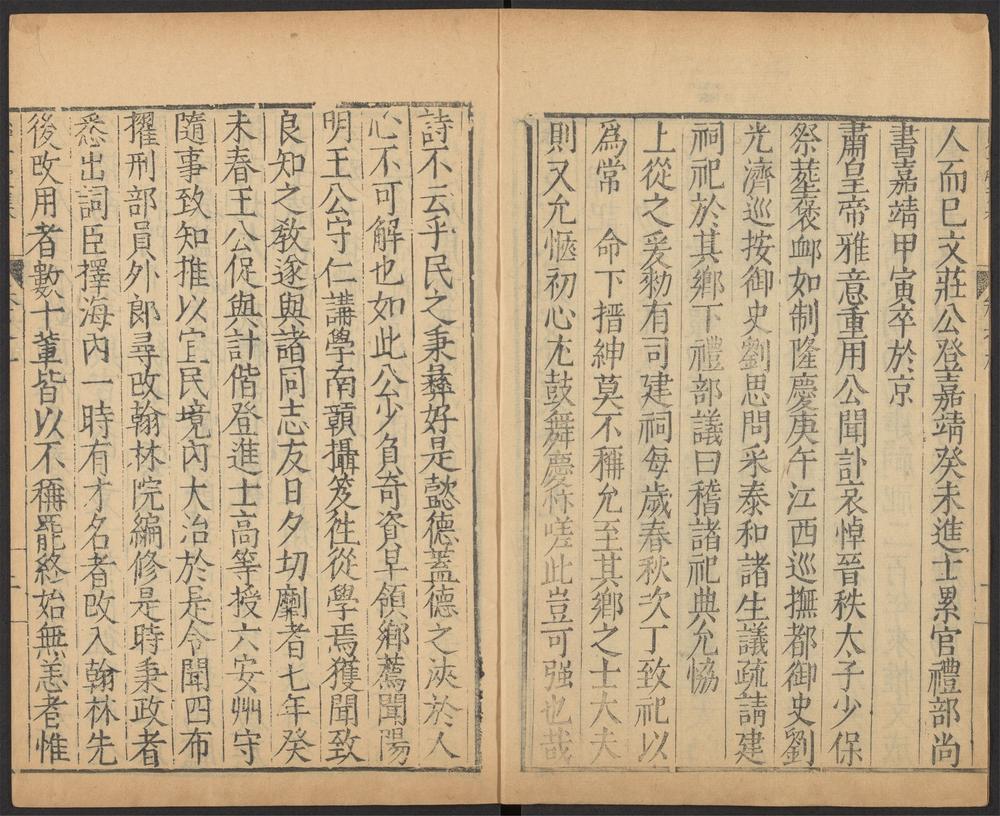 人而已文莊公登嘉靖癸未進士累官禮部尚
書嘉靖甲寅卒於京
肅皇帝雅意重用公聞訃哀悼晉秩太子少保
祭塟褒卹如制隆慶庚午江西巡撫都御史劉
光濟巡按御史劉思問采泰和諸生議疏請建
祠祀於其鄉下禮部議曰稽諸祀典允恊
上從之爰勑有司建祠每歲春秋次丁致祀以
爲常 命下搢紳莫不稱允至其鄉之士大夫
則又允愜初心尤鼓舞慶忭嗟此豈可强也哉
詩不云乎民之秉彝好是懿德蓋德之浹於人
心不可解也如此公少負奇資早領鄉薦聞陽
明王公守仁講學南贛攝笈徃從學焉獲聞致
良知之敎遂與諸同志友日夕切劘者七年癸
未春王公促與計偕登進士高等授六安州守
隨事致知推以宜民境內大治於是令聞四布
擢刑部員外郎尋改翰林院編修是時秉政者
悉出詞臣擇海內一時有才名者改入翰林先
後改用者數十輩皆以不稱罷終始無恙者惟